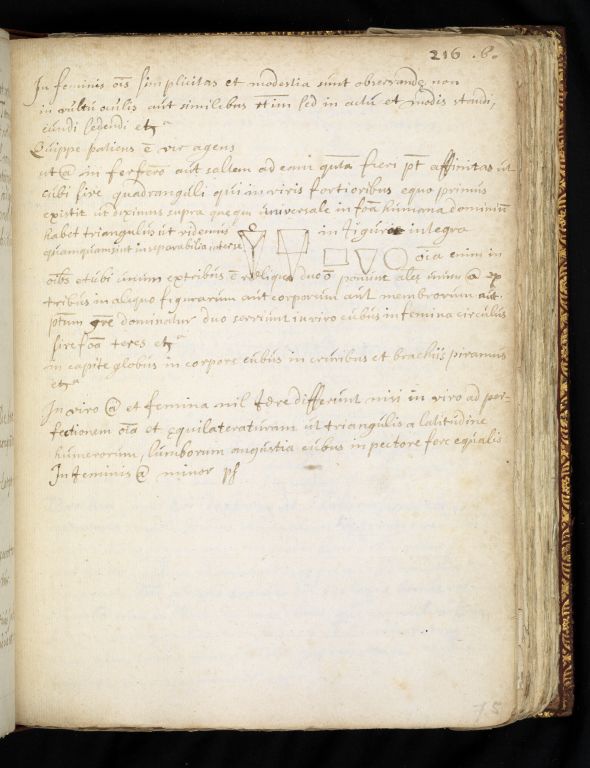 216 .6.
In feminis oĩs simplicitas et modestia sunt observandę non
in vultu oculis aut similibus tm̃ sed in actu et modis standi,
eundi sedendi etc
Quippe patiens ē vir agens
ut in ad eam fieri pt̃ affinitas ut
cubi sive quadranguli qui in viris fortioribus equo primus
existit ut diximus supra queque universale in foã humana dominiũ
habet triangulus ut videmus in figura integra
quamquam sint inseparabilia inter se oĩa enim in
oĩbs etubi unum ex tribus ē reliqua duo õ ponunt ales unum ex
tribus in aliquo figurarum aut corporum aut membrorum aut
dominatur duo serviunt in viro cubus in femina circulus
sive foã teres etc
in capite globus in corpore cubus in cruribus et brachiis piramus
etc
In viro et femina nil fere differunt nisi in viro ad per-
fectionem oĩa et equilateraturam ut triangulis a latitudine
humerorum, lumborum angustia cubus in pectore fere equalis
In feminis minor
75